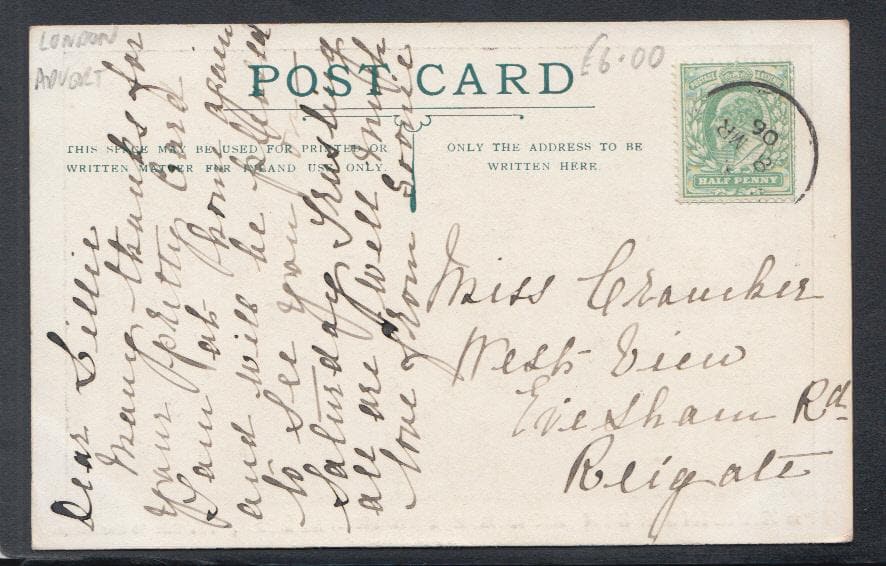 LONDON
ADVERT
£6.00
POST CARD
THIS SPACE MAY BE USED FOR PRINTED OR
WRITTEN MATTER FOR INLAND USE ONLY.
ONLY THE ADDRESS TO BE
WRITTEN HERE.
HALF PENNY
MR
20
06
Dear Lillie
Many thanks for
your pretty Card
I am at home again
and will be pleased
to see you for
Saturday Trusting
all are well with
love from Boonie
Miss Croucher
West View
Evesham Rd
Reigate